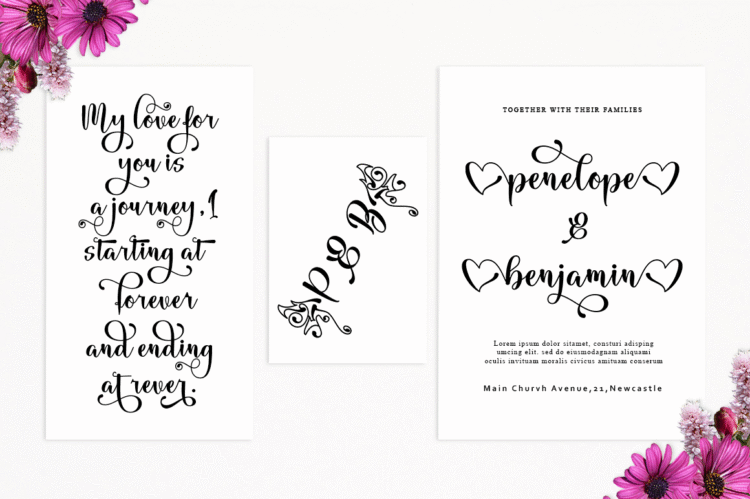 My love for
you is
a journey, I
starting at
forever
and ending
at rever.
P & B
TOGETHER WITH THEIR FAMILIES
penelope
&
benjamin
Lorem ipsum dolor sitamet, consturi adipising
umcing elit. sed do eiusmodagnam aliquami
oculis invituip moralas civicus amituis conserum
Main Churvh Avenue,21,Newcastle